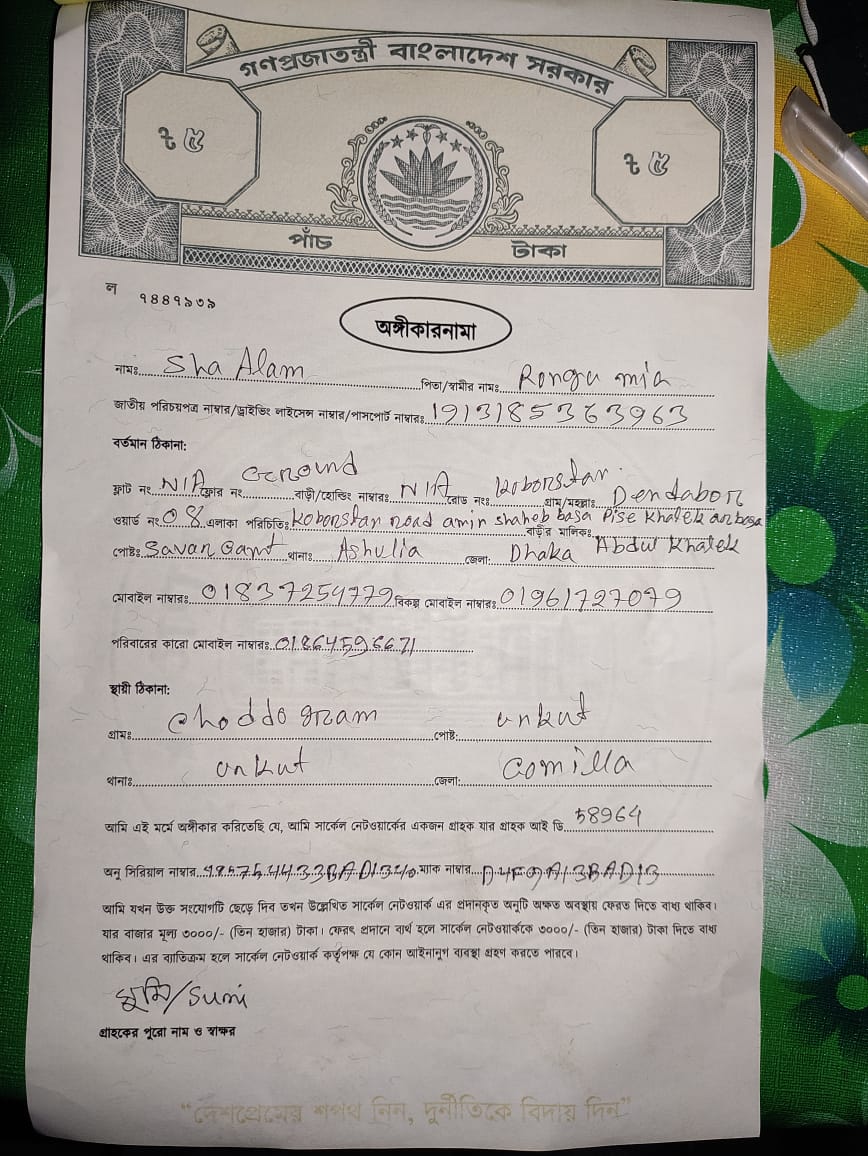 গণপ্রজাতন্ত্রী বাংলাদেশ সরকার
৳ ৫ ৳ ৫
পাঁচ টাকা
ল ৭৪৪৭৯৩৯
অঙ্গীকারনামা
নামঃ Sha Alam পিতা/স্বামীর নামঃ Rongu mia
জাতীয় পরিচয়পত্র নাম্বার/ড্রাইভিং লাইসেন্স নাম্বার/পাসপোর্ট নাম্বারঃ 1913185363963
বর্তমান ঠিকানা:
ফ্লাট নং N/A ফ্লোর নং Ground বাড়ী/হোল্ডিং নাম্বারঃ N/A রোড নংঃ Kobonstan গ্রাম/মহল্লাঃ Dendabor
ওয়ার্ড নংঃ 08 এলাকা পরিচিতিঃ Kobonstan road amin shaheb basa Pise Khalek ar basa
পোষ্টঃ Savar Cant থানাঃ Ashulia জেলা: Dhaka বাড়ীর মালিকঃ Abdul Khalek
মোবাইল নাম্বারঃ 01837254779 বিকল্প মোবাইল নাম্বারঃ 01961727079
পরিবারের কারো মোবাইল নাম্বারঃ 01864596671
স্থায়ী ঠিকানা:
গ্রামঃ Choddo gram পোষ্ট:
থানাঃ জেলা: Comilla
আমি এই মর্মে অঙ্গীকার করিতেছি যে, আমি সার্কেল নেটওয়ার্কের একজন গ্রাহক যার গ্রাহক আই ডি 58964
অনু সিরিয়াল নাম্বার ম্যাক নাম্বার
আমি যখন উক্ত সংযোগটি ছেড়ে দিব তখন উল্লেখিত সার্কেল নেটওয়ার্ক এর প্রদানকৃত অনুটি অক্ষত অবস্থায় ফেরত দিতে বাধ্য থাকিব।
যার বাজার মূল্য ৩০০০/- (তিন হাজার) টাকা। ফেরৎ প্রদানে ব্যর্থ হলে সার্কেল নেটওয়ার্ককে ৩০০০/- (তিন হাজার) টাকা দিতে বাধ্য
থাকিব। এর ব্যতিক্রম হলে সার্কেল নেটওয়ার্ক কর্তৃপক্ষ যে কোন আইনানুগ ব্যবস্থা গ্রহণ করতে পারবে।
সুমি/Sumi
গ্রাহকের পুরো নাম ও স্বাক্ষর
“দেশপ্রেমের শপথ নিন, দুর্নীতিকে বিদায় দিন”